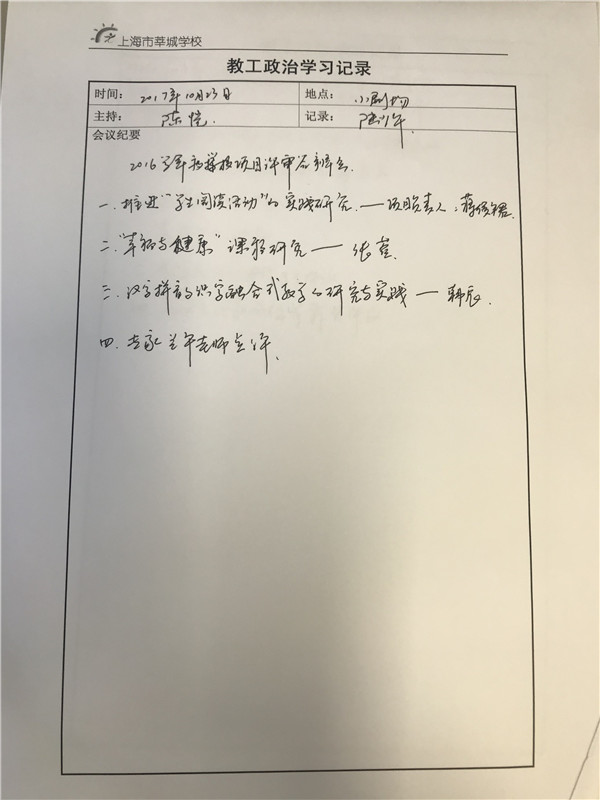 上海市莘城学校
教工政治学习记录
时间: 2017年10月23日 地点: 小剧场
主持: 陈悦. 记录:
会议纪要
2016学年 项目评审 会.
一. 推进"学生阅读活动"的实践研究. —— 项目负责人: 蒋
二. "草药与健康"课程研究 —— 张
三. 汉字拼音与识字融合式教学的研究与实践 — 韩辰.
四. 专家 老师点评.